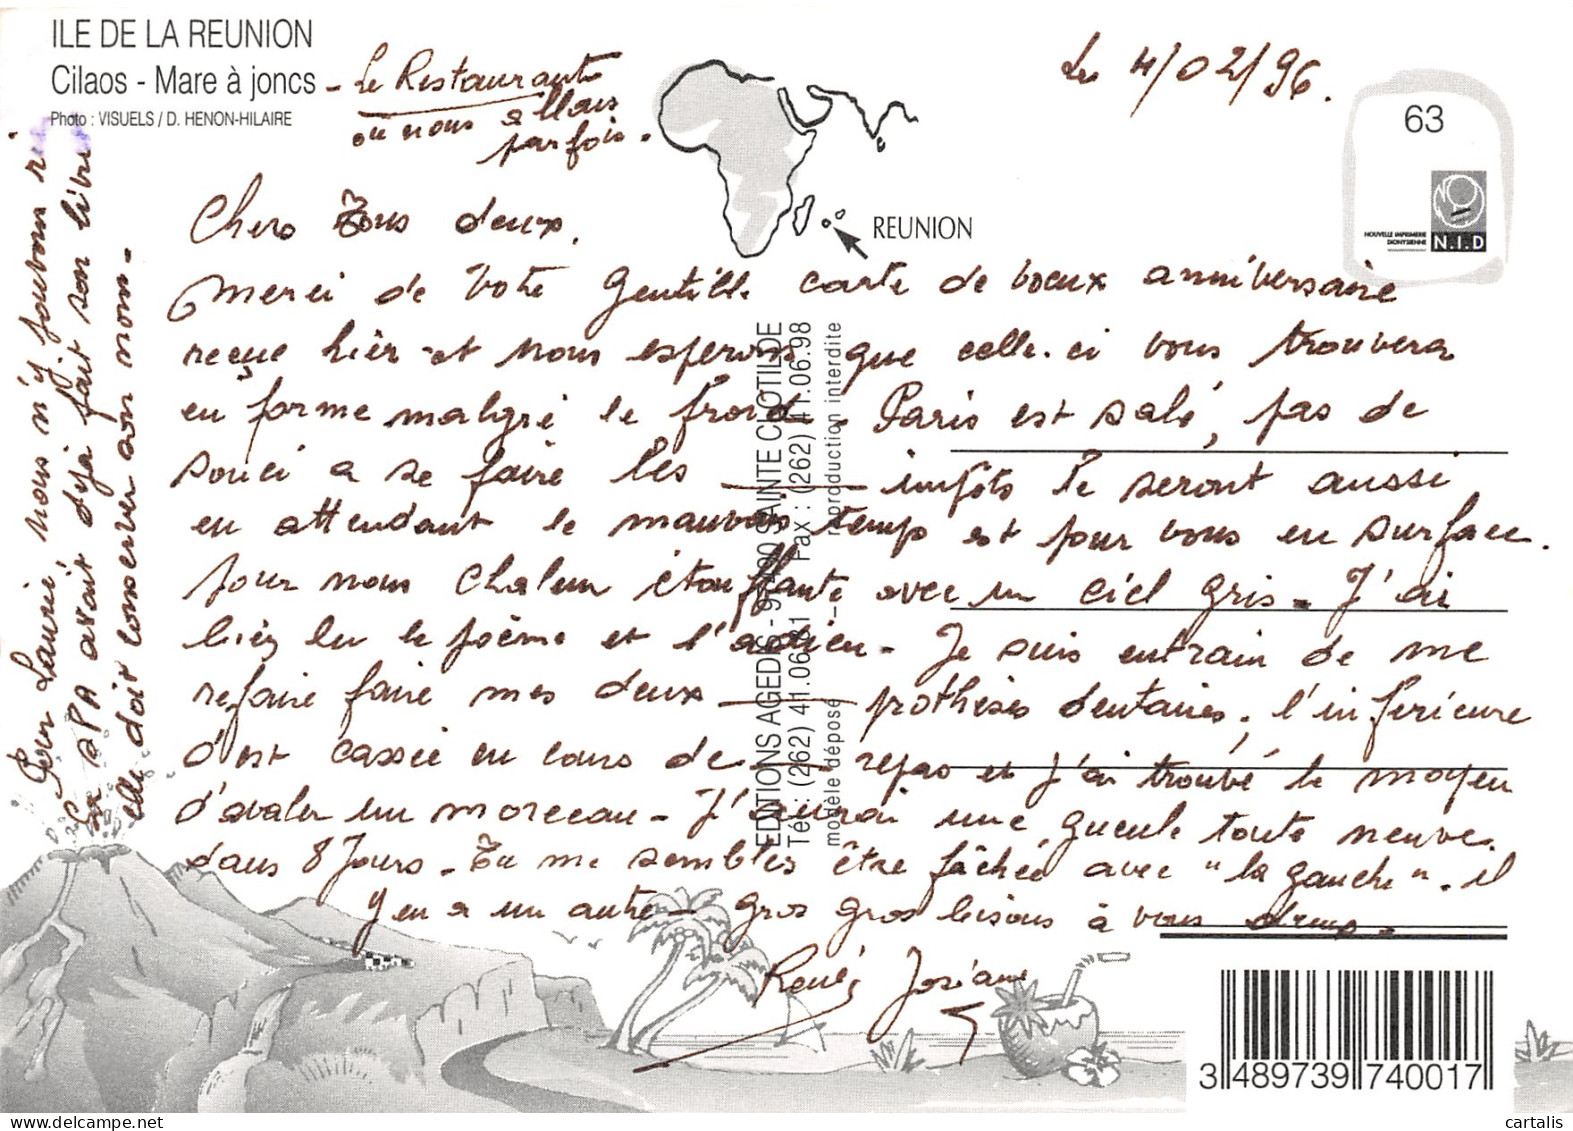 ILE DE LA REUNION
Cilaos - Mare à joncs - Le Restaurant
Photo : VISUELS / D. HENON-HILAIRE
ou nous allons
parfois.
Le 4/02/96.
63
NOUVELLE IMPRIMERIE
DIONYSIENNE
N.I.D
REUNION
Chers Tous deux,
Merci de Votre Gentille carte de voeux anniversaire
reçue hier et nous esperons que celle-ci vous trouvera
en forme malgré le froid. Paris est salé, pas de
souci a se faire les impôts le seront aussi
en attendant le mauvais temps est pour vous en surface.
pour nous chaleur étouffante avec un ciel gris - J'ai
bien lu le poème et l'adieu - Je suis entrain de me
refaire faire mes deux prothèses dentaires, l'inferieure
s'est cassée en cours de repas et j'ai trouvé le moyen
d'avaler un morceau - J'aurai une gueule toute neuve
dans 8 Jours - Tu me sembles être fâchée avec "la gauche". il
y en a un autre - gros gros bisous à vous deux -
René, Josiane
Pour Laurie, nous n'y pouvons rien
la SPA avait déjà fait son livre
elle doit conserver son nom -
EDITIONS AGEDIS - 97490 SAINTE CLOTILDE
Tél : (262) 41.06.81 - Fax : (262) 41.06.98
modèle déposé - reproduction interdite
3 489739 740017
cartalis